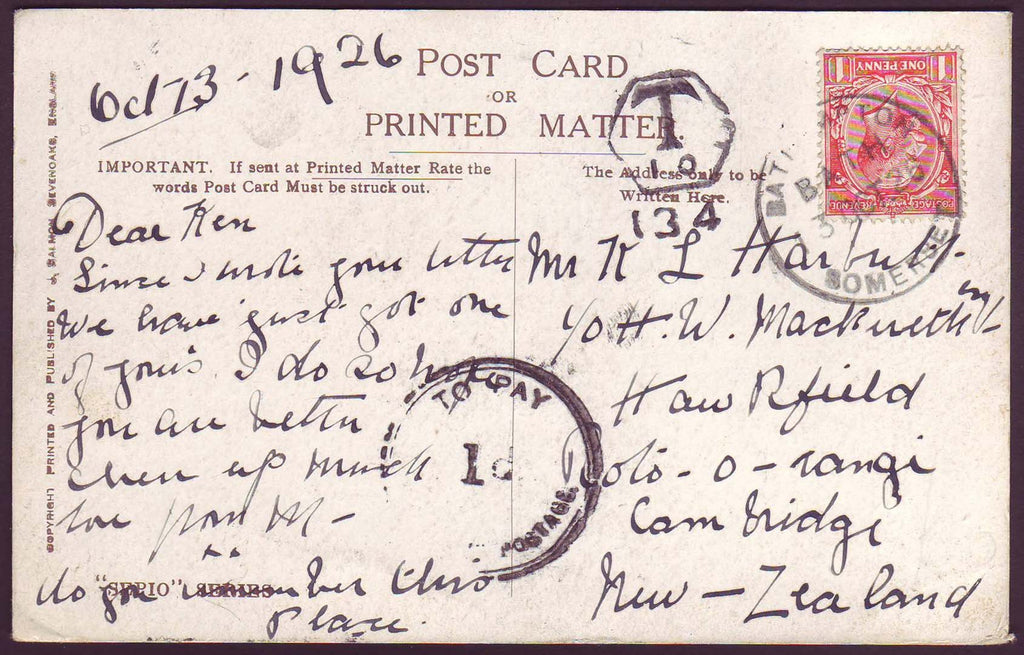 Oct 13 - 1926
POST CARD
OR
PRINTED MATTER.
IMPORTANT. If sent at Printed Matter Rate the
words Post Card Must be struck out.
The Address only to be
Written Here.
T
10
134
ONE PENNY
1 1
POSTAGE REVENUE
BAT TON
SOMERSET
COPYRIGHT PRINTED AND PUBLISHED BY J. SALMON SEVENOAKS, ENGLAND
Dear Ken
Since I wrote your letter
We have just got one
of yours. I do so hope
you are better
cheer up much
love from M -
do you remember this
place.
"SEPIO" SERIES
TO PAY
1d
POSTAGE.
Mr K L Harbutt
c/o H. W. Mackwreth
Hawkfield
Roto-o-rangi
Cambridge
New - Zealand